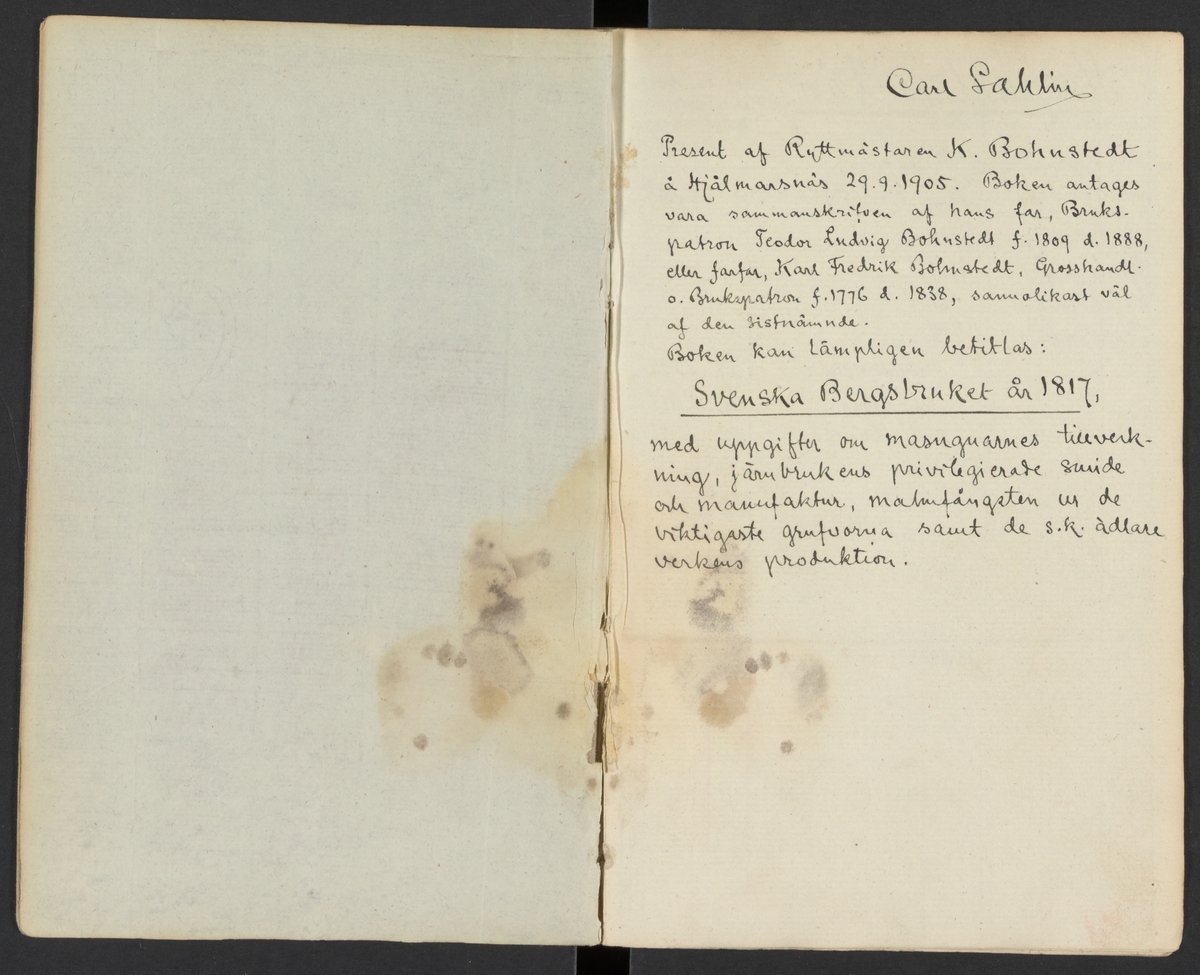 Carl Sahlin
Present af Ryttmästaren K. Bohnstedt
å Hjälmarsnäs 29.9.1905. Boken antages
vara sammanskrifven af hans far, Bruks-
patron Teodor Ludvig Bohnstedt f. 1809 d. 1888,
eller farfar, Karl Fredrik Bohnstedt, Grosshandl.
o. Brukspatron f. 1776 d. 1838, sannolikast väl
af den sistnämnde.
Boken kan lämpligen betitlas:
Svenska Bergsbruket år 1817,
med uppgifter om masugnarnes tillverk-
ning, järnbrukens privilegierade smide
och manufaktur, malmfångsten ur de
viktigaste grufvorna samt de s.k. ädlare
verkens produktion.